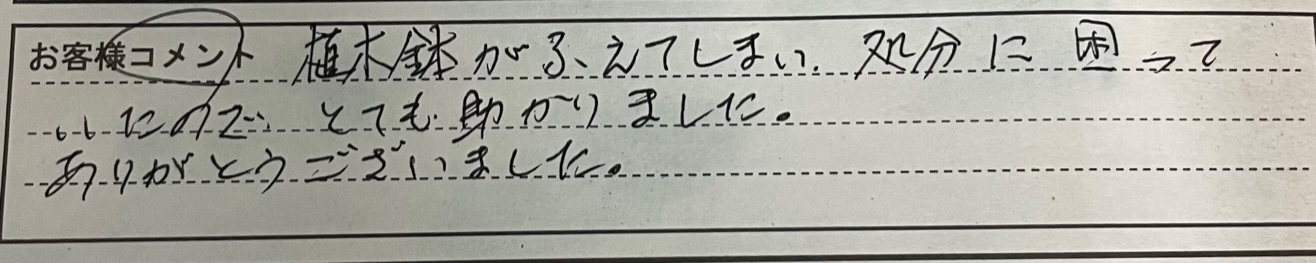 お客様コメント 植木鉢がふえてしまい、処分に困って
いたので、とても助かりました。
ありがとうございました。